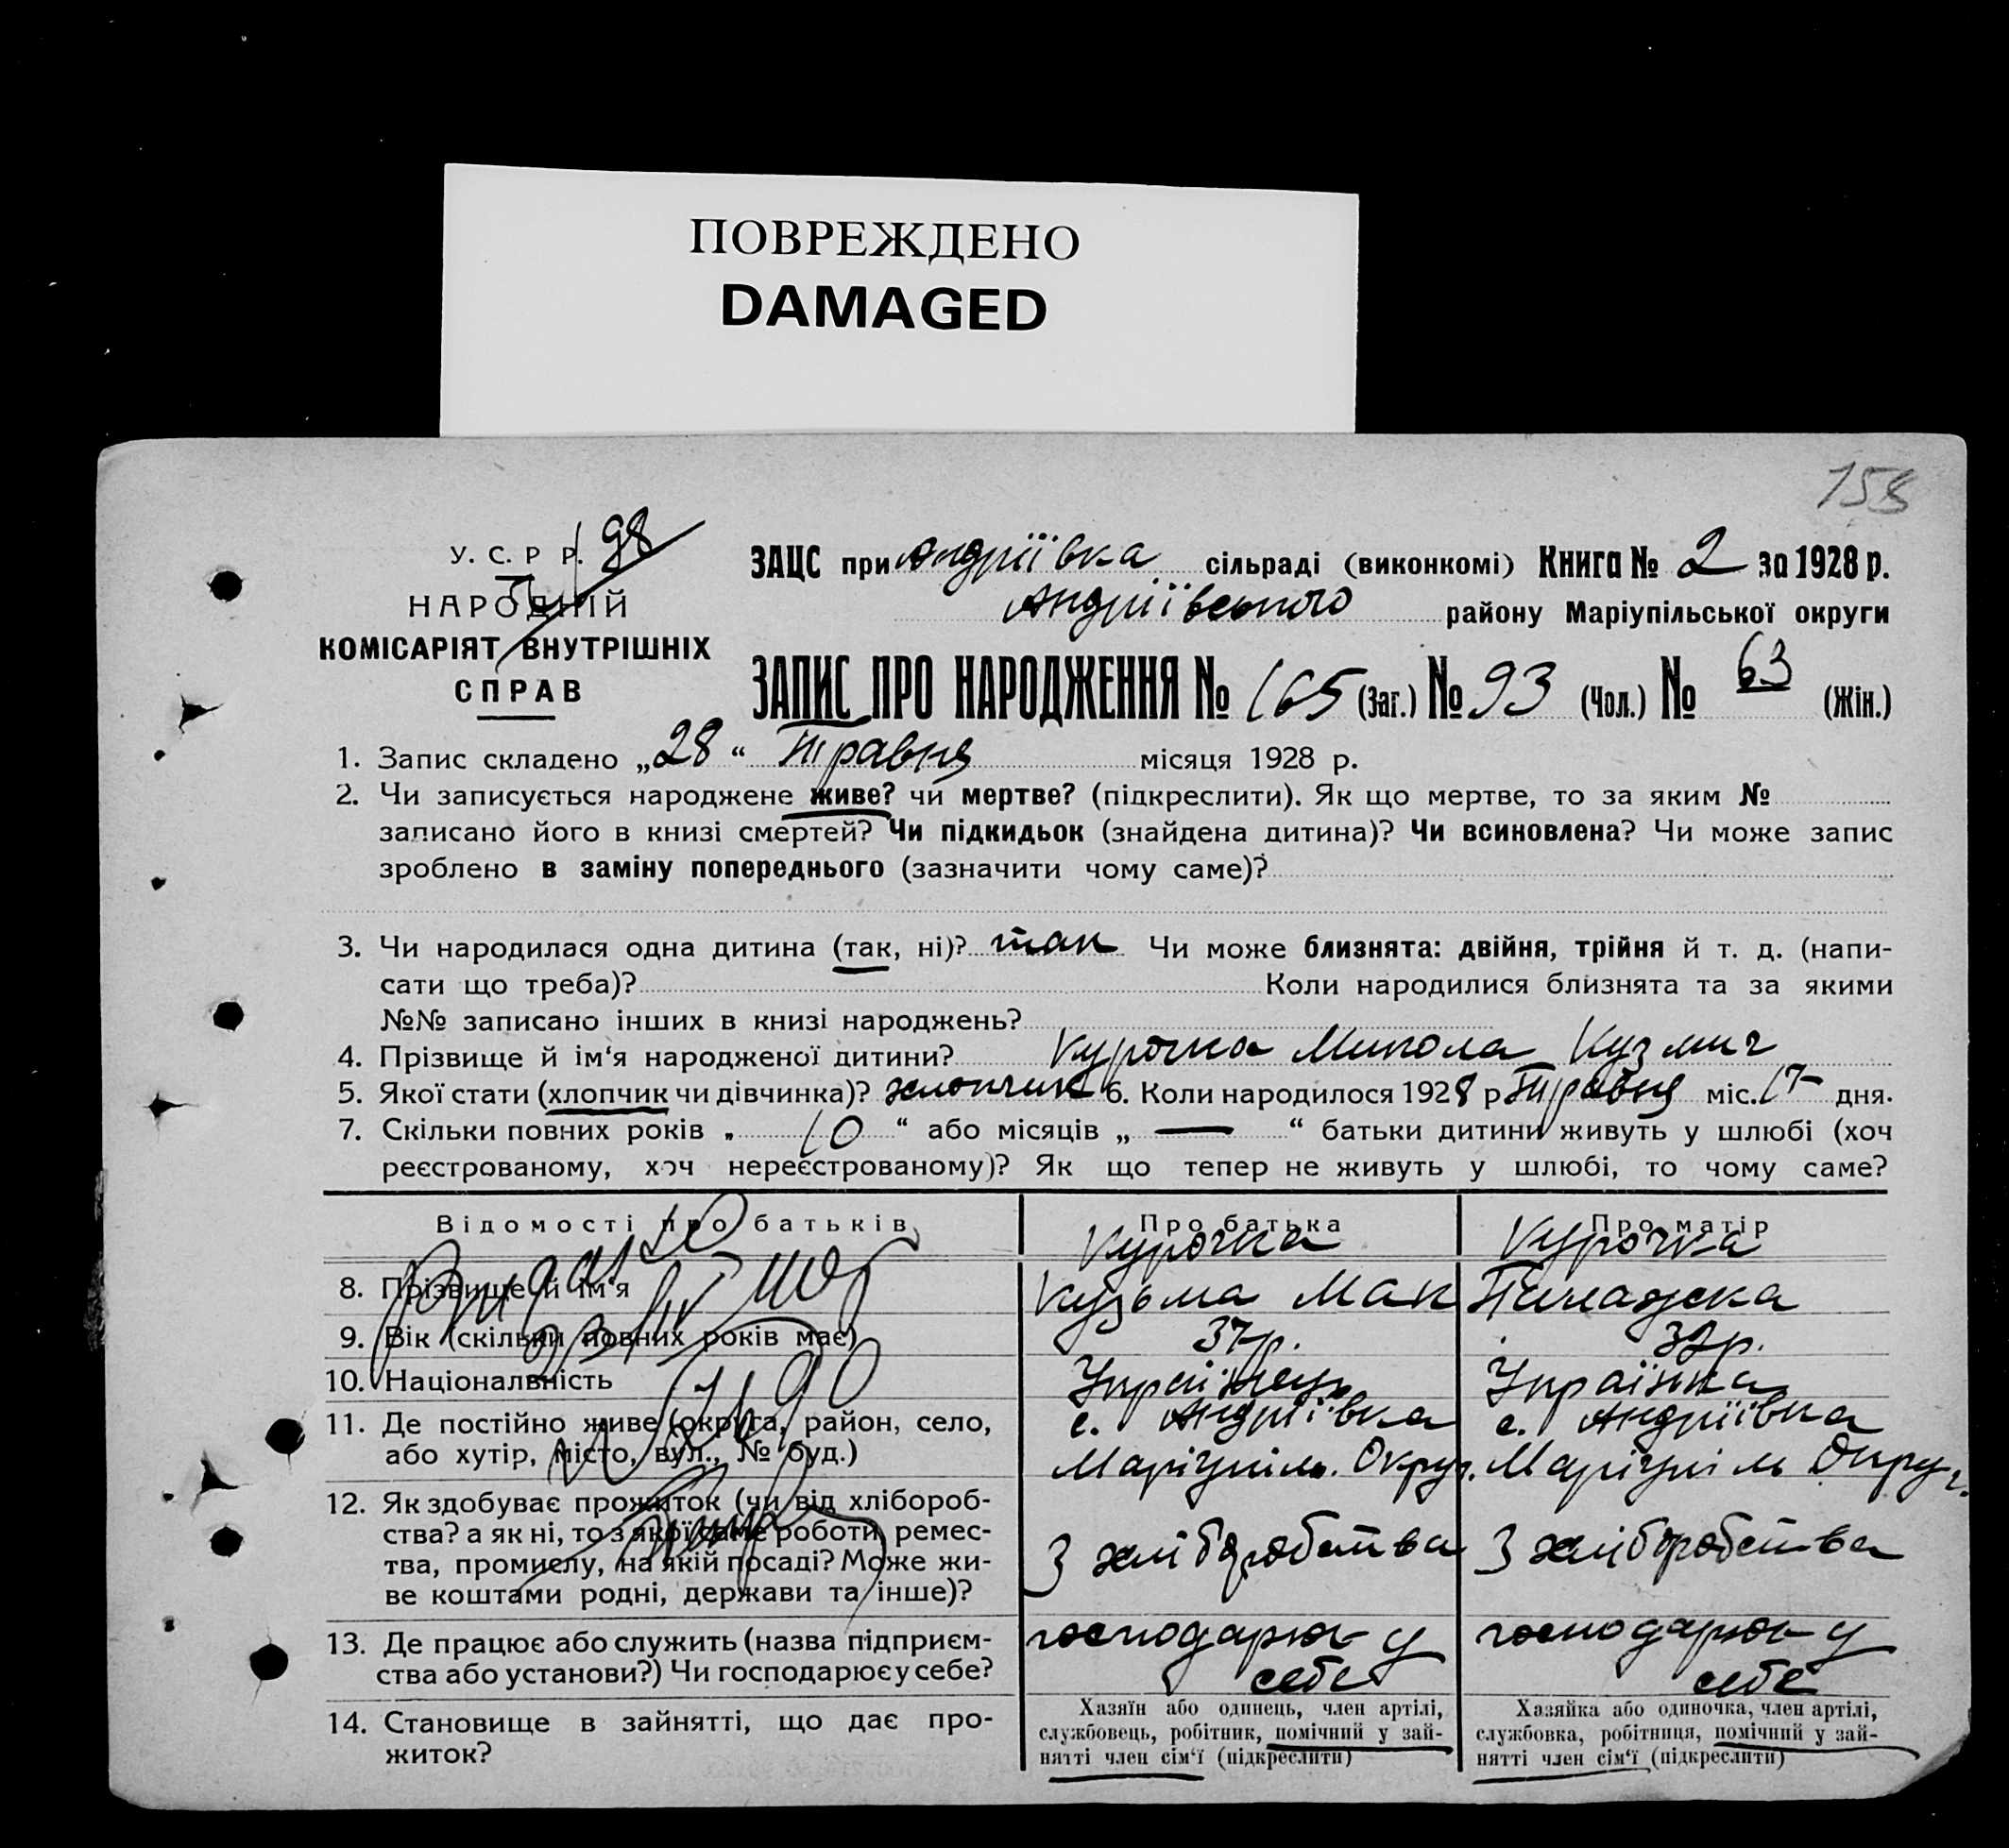 ПОВРЕЖДЕНО
DAMAGED
158
98
У. С. Р Р.
НАРОДНІЙ
КОМІСАРІЯТ ВНУТРІШНІХ
СПРАВ
ЗАЦС при Андріївка сільраді (виконкомі) Книга № 2 за 1928 р.
Андріївського району Маріупільської округи
ЗАПИС ПРО НАРОДЖЕННЯ № 165 (Заг.) № 93 (Чол.) № 63 (Жін.)
1. Запис складено „28“ Травня місяця 1928 р.
2. Чи записується народжене живе? чи мертве? (підкреслити). Як що мертве, то за яким №
записано його в книзі смертей? Чи підкидьок (знайдена дитина)? Чи всиновлена? Чи може запис
зроблено в заміну попереднього (зазначити чому саме)?
3. Чи народилася одна дитина (так, ні)? так Чи може близнята: двійня, трійня й т. д. (напи-
сати що треба)? Коли народилися близнята та за якими
№№ записано інших в книзі народжень?
4. Прізвище й ім‘я народженої дитини? Курочка Микола Кузмич
5. Якої стати (хлопчик чи дівчинка)? хлопчик 6. Коли народилося 1928 р Травня міс. 17 дня.
7. Скільки повних років „ 10 “ або місяців „ — “ батьки дитини живуть у шлюбі (хоч
реєстрованому, хоч нереєстрованому)? Як що тепер не живуть у шлюбі, то чому саме?
Відомості про батьків Про батька Про матір
Курочка Курочка
8. Прізвище й ім‘я Кузьма Мак Пилажка
9. Вік (скільки повних років має) 37р. 32р.
10. Національність Украінець Українка
11. Де постійно живе (округа, район, село, с. Андріївка с. Андріївка
або хутір, місто, вул., № буд.) Маріупіль. Округ. Маріупіль Округ.
12. Як здобуває прожиток (чи від хлібороб-
ства? а як ні, то з якої саме роботи, ремес-
тва, промислу, на якій посаді? Може жи- З хліборобства З хліборобства
ве коштами родні, держави та інше)?
13. Де працює або служить (назва підприєм- господарює у господарює у
ства або установи?) Чи господарює у себе? себе себе
14. Становище в зайнятті, що дає про-
житок?
Хазяїн або одинець, член артілі,
службовець, робітник, помічний у зай-
нятті член сім‘ї (підкреслити)
Хазяйка або одиночка, член артілі,
службовка, робітниця, помічний у зай-
нятті член сім‘ї (підкреслити)